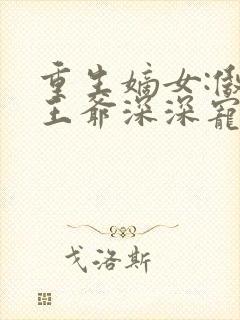 重生嫡女:傲
王爷深深宠
戈洛斯